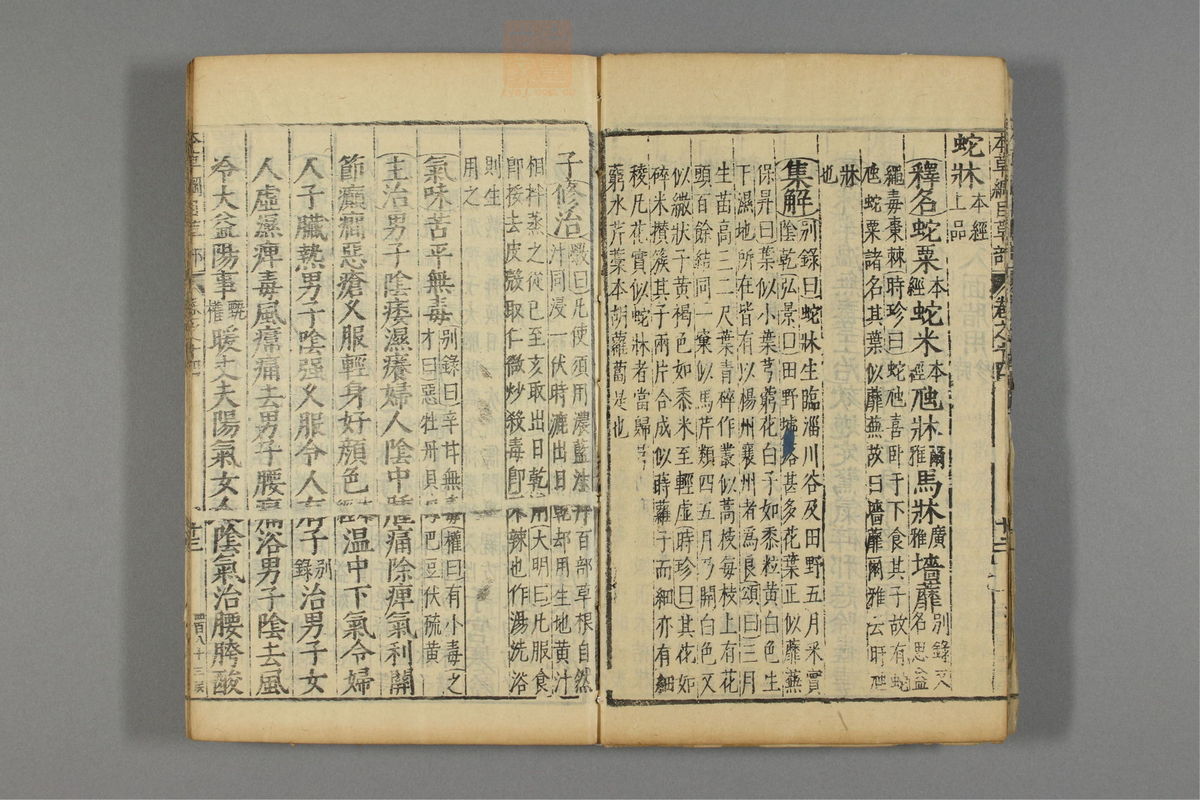 本草綱目草部 卷之十四
蛇牀 本經上品
釋名蛇粟本經蛇米本經虺牀爾雅馬牀廣雅墻蘼別錄又名思益
繩毒棗棘時珍曰蛇虺喜卧于下食其子故有蛇
虺蛇粟諸名其葉似蘼蕪故曰墻蘼爾雅云盱虺
牀也
集解別錄曰蛇牀生臨淄川谷及田野五月采實
陰乾弘景曰田野墟落甚多花葉正似蘼蕪
保昇曰葉似小葉芎藭花白子如黍粒黄白色生
下濕地所在皆有以楊州襄州者爲良頌曰三月
生苗高三二尺葉青碎作叢似蒿枝每枝上有花
頭百餘結同一窠似馬芹類四五月乃開白色又
似繖狀子黄褐色如黍米至輕虛時珍曰其花如
碎米攢簇其子兩片合成似時蘿子而細亦有細
稜凡花實似蛇牀者當歸芎
藭水芹藁本胡蘿蔔是也
子修治斆曰凡使須用濃藍汁并百部草根自然
汁同浸一伏時漉出日乾却用生地黄汁
相拌蒸之從巳至亥取出日乾用大明曰凡服食
卽挼去皮殼取仁微炒殺毒卽不辣也作湯洗浴
則生
用之
氣味苦平無毒别錄曰辛甘無毒權曰有小毒之
才曰惡牡丹貝母巴豆伏硫黄
主治男子陰痿濕癢婦人陰中腫痛除痺氣利關
節癲癇惡瘡久服輕身好顔色本經温中下氣令婦
人子臟熱男子陰强久服令人有子别錄治男子女
人虛濕痺毒風㾽痛去男子腰痛浴男子陰去風
冷大益陽事甄權暖丈夫陽氣女人陰氣治腰胯酸
卷之十四
廿三